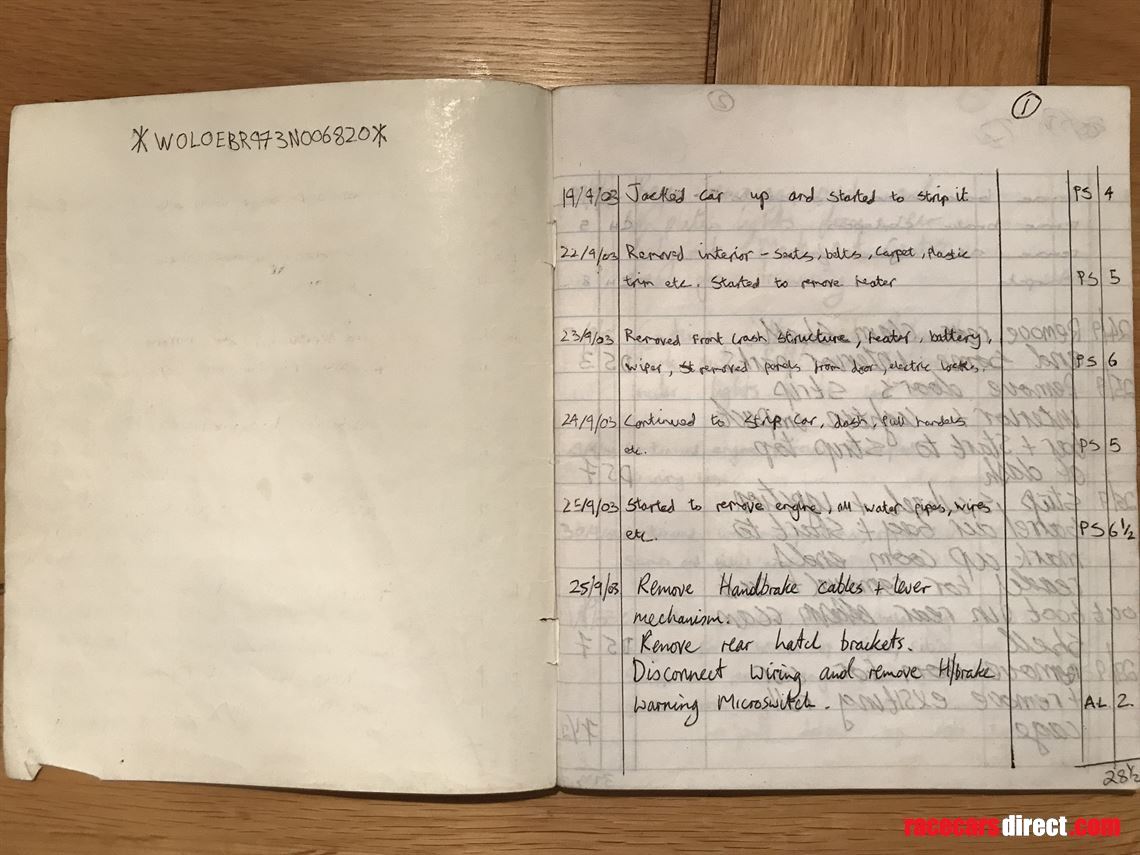 *WOLOEBR973N006820*
1
19/9/03 Jacked car up and started to strip it PS 4
22/9/03 Removed interior - seats, belts, carpet, plastic
trim etc. Started to remove heater PS 5
23/9/03 Removed front crash structure, heater, battery,
wiper, removed panels from door, electric PS 6
24/9/03 Continued to strip car, dash, pull handels
etc. PS 5
25/9/03 Started to remove engine, all water pipes, wires
etc. PS 6 1/2
25/9/03 Remove Handbrake cables + lever
mechanism.
Remove rear hatch brackets.
Disconnect wiring and remove H/brake
warning Microswitch. AL 2.
28 1/2
racecarsdirect.com